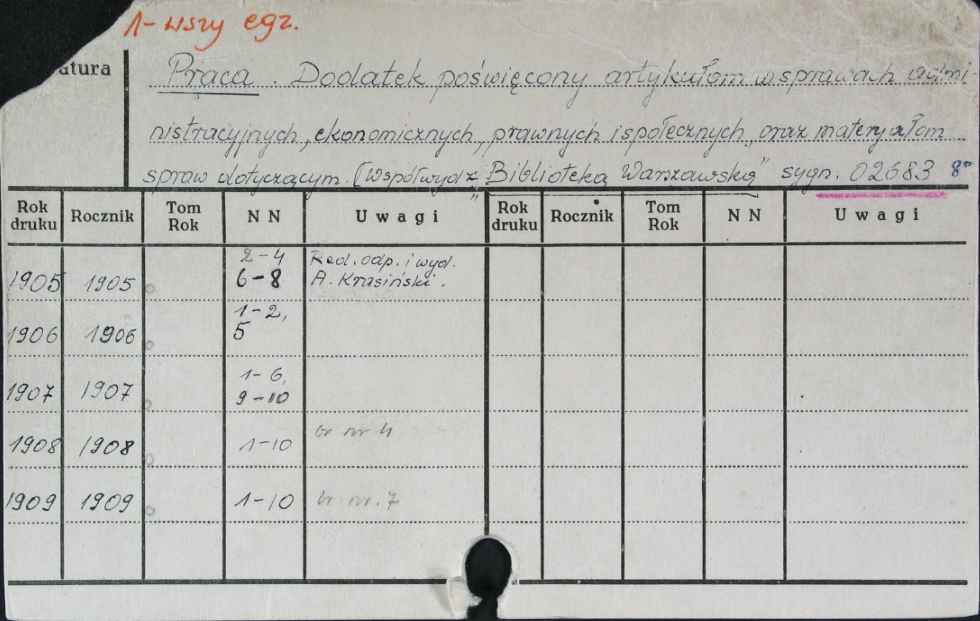 1-wszy egz.
atura
Praca. Dodatek poświęcony artykułom w sprawach admi
nistracyjnych, ekonomicznych, prawnych i społecznych, oraz materyałom
spraw dotyczącym. [Współwyd. z „Biblioteką Warszawską" sygn. 02683 8°
Rok druku Rocznik Tom Rok NN Uwagi Rok druku Rocznik Tom Rok NN Uwagi
1905 1905 2-4 6-8 Red. odp. i wyd. A. Krasiński.
1906 1906 1-2, 5
1907 1907 1-6, 9-10
1908 1908 1-10 br nr 4
1909 1909 1-10 br nr. 7